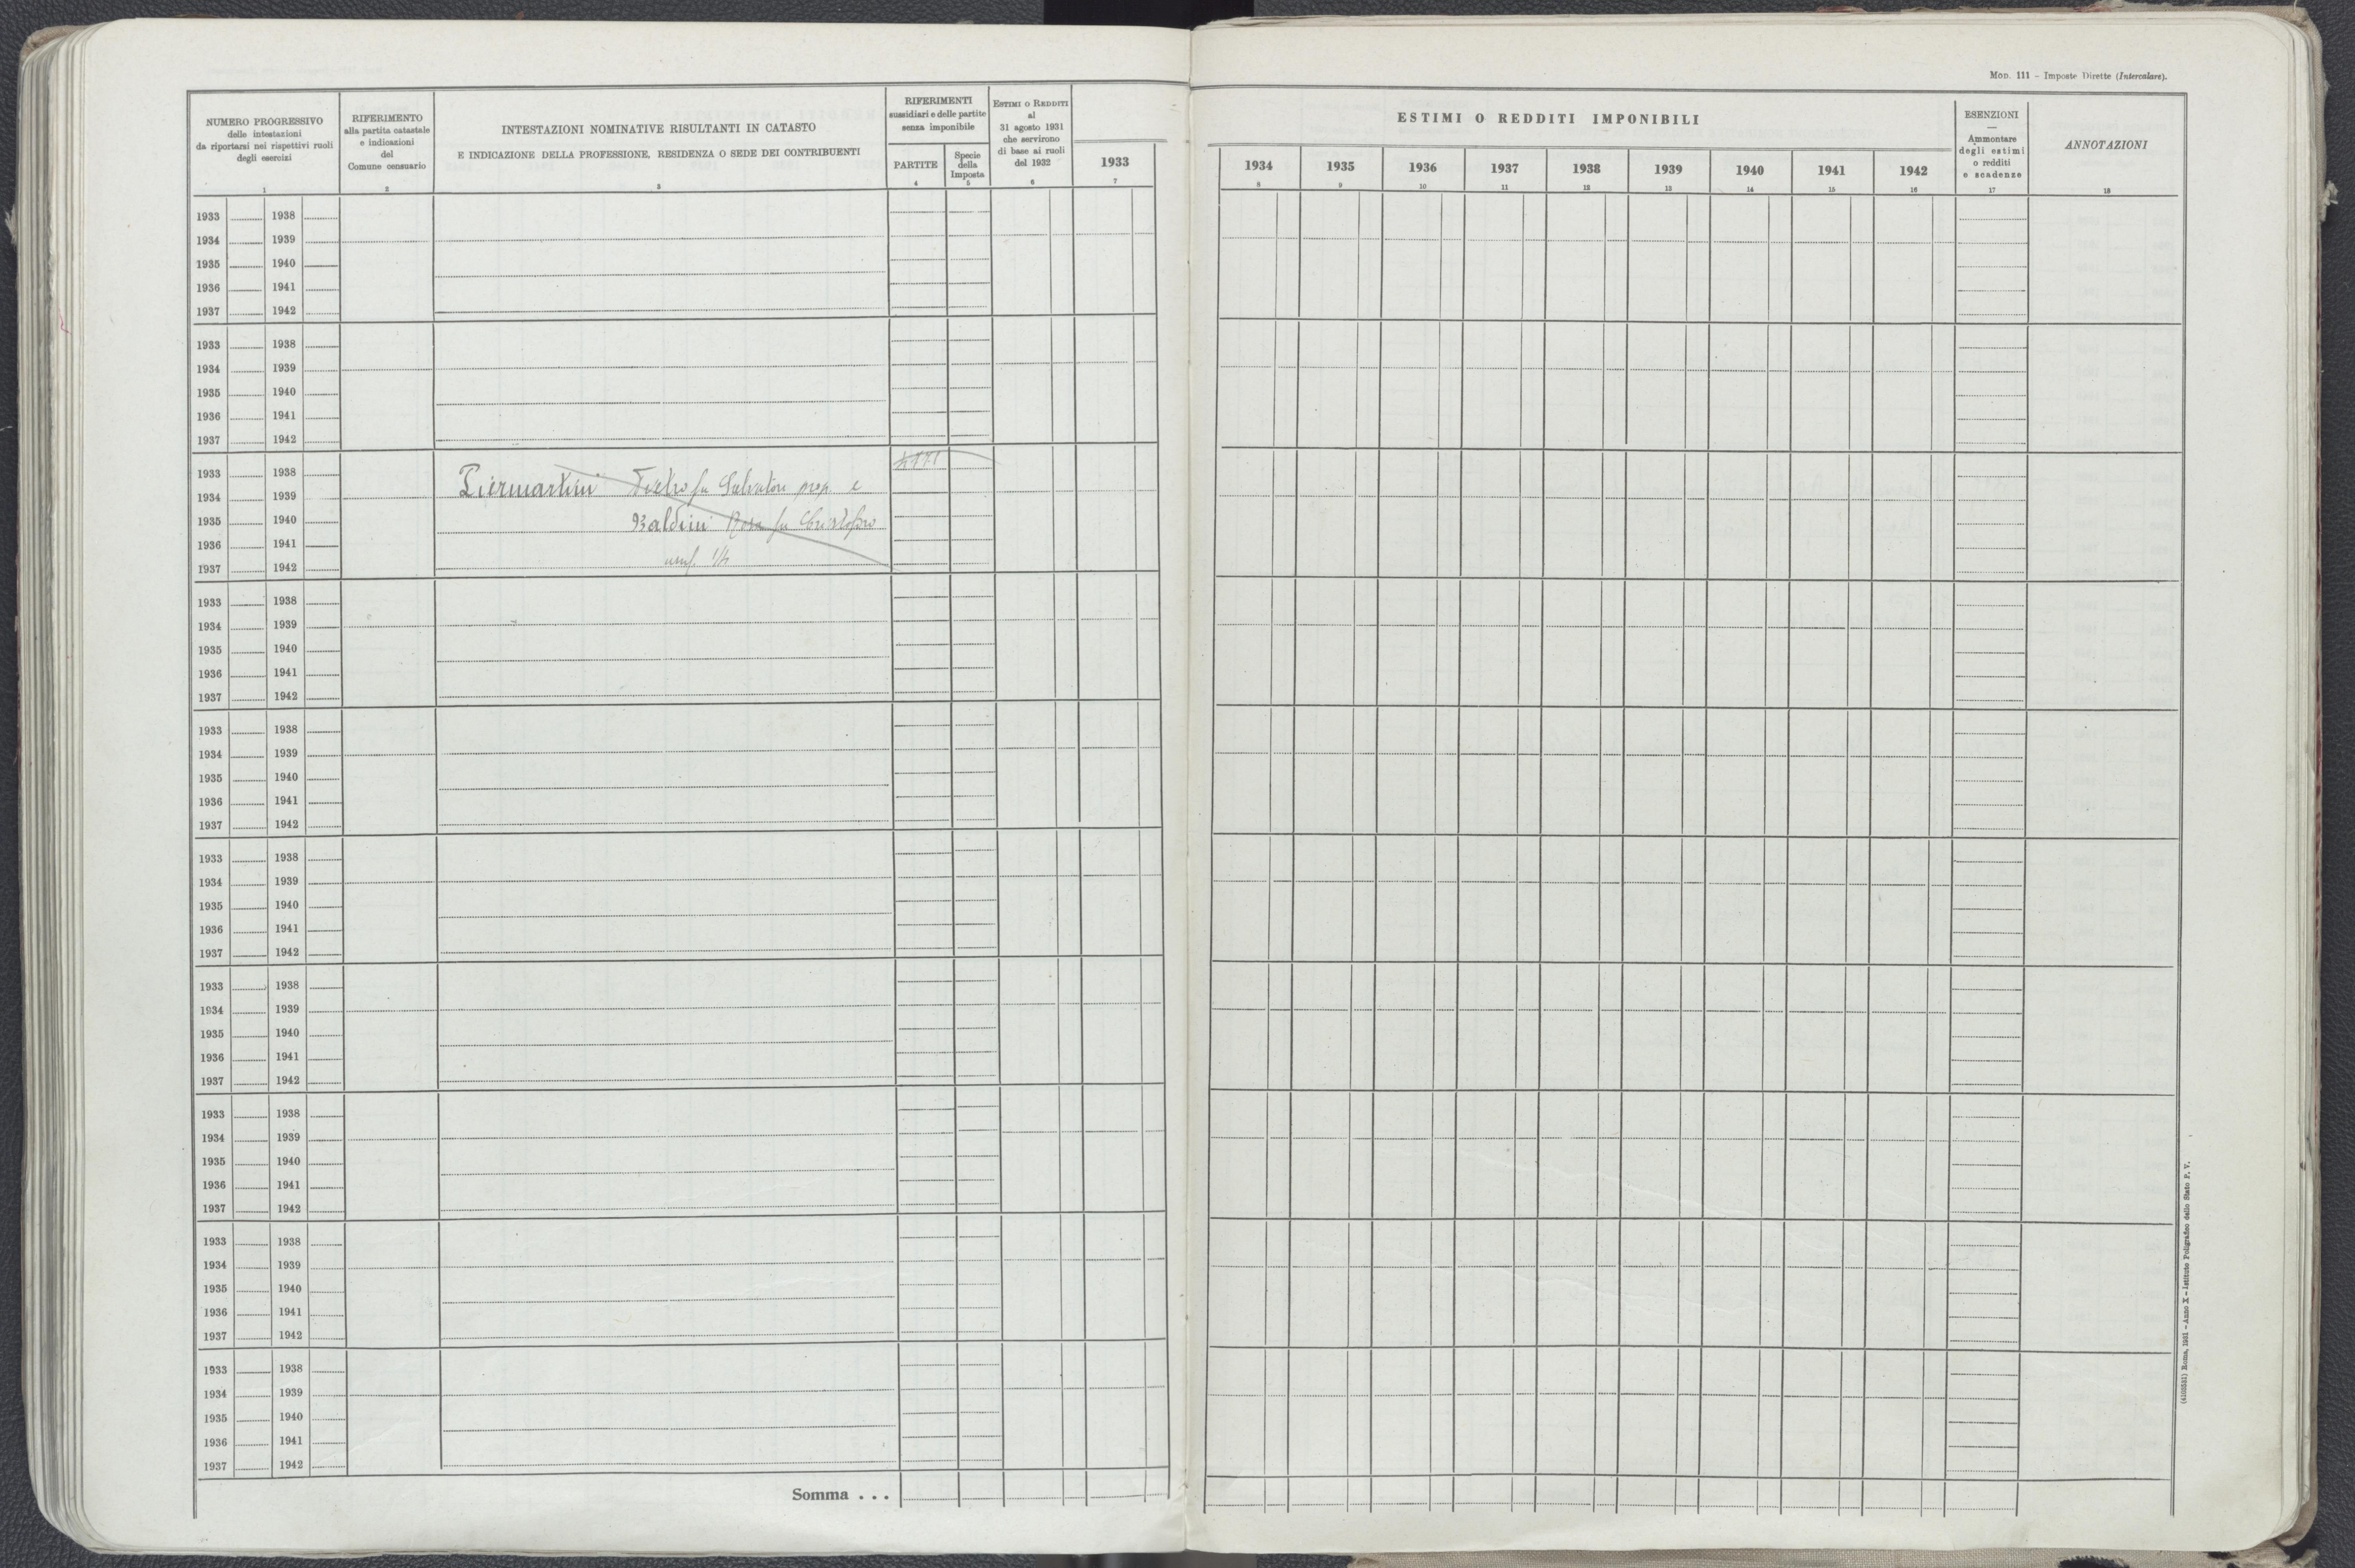 MOD. 111 – Imposte Dirette (Intercalare).
NUMERO PROGRESSIVO
delle intestazioni
da riportarsi nei rispettivi ruoli
degli esercizi
1
RIFERIMENTO
alla partita catastale
e indicazioni
del
Comune censuario
2
INTESTAZIONI NOMINATIVE RISULTANTI IN CATASTO
E INDICAZIONE DELLA PROFESSIONE, RESIDENZA O SEDE DEI CONTRIBUENTI
3
RIFERIMENTI
sussidiari e delle partite
senza imponibile
PARTITE
4
Specie
della
Imposta
5
ESTIMI O REDDITI
al
31 agosto 1931
che servirono
di base ai ruoli
del 1932
6
1933
7
ESTIMI O REDDITI IMPONIBILI
1934 1935 1936 1937 1938 1939 1940 1941 1942
8 9 10 11 12 13 14 15 16
ESENZIONI
—
Ammontare
degli estimi
o redditi
e scadenze
17
ANNOTAZIONI
18
1933 1938
1934 1939
1935 1940
1936 1941
1937 1942
1933 1938
1934 1939
1935 1940
1936 1941
1937 1942
1933 1938
1934 1939 Piermartini Pietro fu Salvatore prop. e
1935 1940 Baldini Rosa fu Cristoforo
1936 1941
1937 1942 usuf.
1933 1938
1934 1939
1935 1940
1936 1941
1937 1942
1933 1938
1934 1939
1935 1940
1936 1941
1937 1942
1933 1938
1934 1939
1935 1940
1936 1941
1937 1942
1933 1938
1934 1939
1935 1940
1936 1941
1937 1942
1933 1938
1934 1939
1935 1940
1936 1941
1937 1942
1933 1938
1934 1939
1935 1940
1936 1941
1937 1942
1933 1938
1934 1939
1935 1940
1936 1941
1937 1942
Somma . . .
Roma, 1931 – Anno X – Istituto Poligrafico dello Stato P. V.